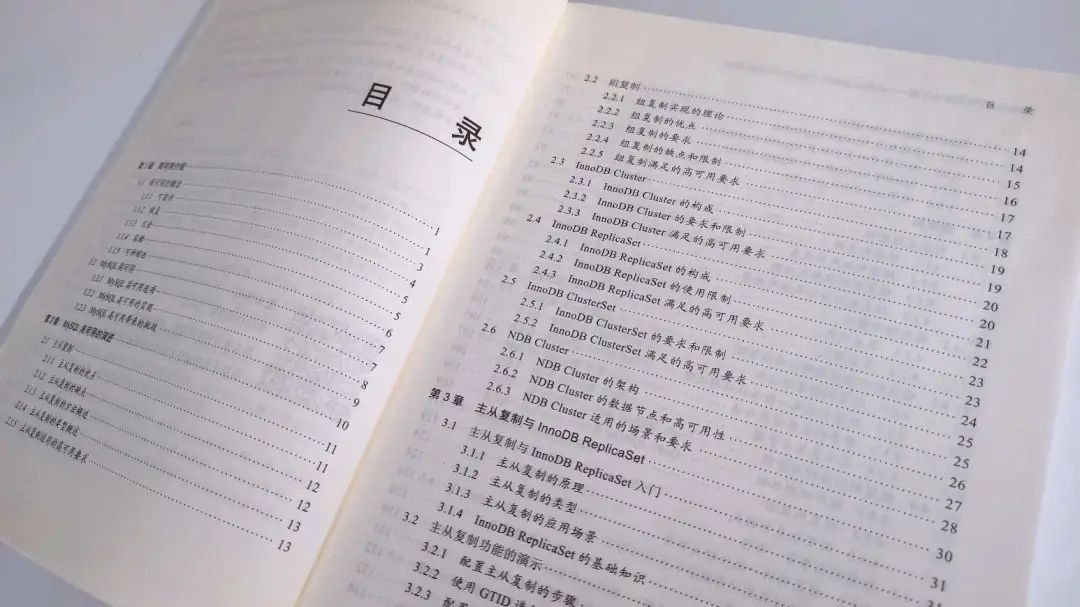 目录
第1章 高可用介绍 1
1.1 高可用的概念 1
1.1.1 可靠性 3
1.1.2 恢复 4
1.1.3 冗余 5
1.1.4 容错 5
1.1.5 6
1.2 MySQL 高可用 7
1.2.1 MySQL 高可用选项 7
1.2.2 MySQL 高可用的实现 8
1.2.3 MySQL 高可用带来的挑战 9
第2章 MySQL 高可用的 10
2.1 主从复制 11
2.1.1 主从复制的优点 11
2.1.2 主从复制的缺点 12
2.1.3 主从复制的方法概述 12
2.1.4 主从复制的类型概述 13
2.1.5 主从复制 的高可用要求 13
目 录
2.2 组复制 14
2.2.1 组复制实现的理论 14
2.2.2 组复制的优点 15
2.2.3 组复制的要求 16
2.2.4 组复制的缺点和限制 17
2.2.5 组复制满足的高可用要求 17
2.3 InnoDB Cluster 18
2.3.1 InnoDB Cluster 的构成 19
2.3.2 InnoDB Cluster 的要求和限制 19
2.3.3 InnoDB Cluster 满足的高可用要求 20
2.4 InnoDB ReplicaSet 20
2.4.1 InnoDB ReplicaSet 的构成 21
2.4.2 InnoDB ReplicaSet 的使用限制 22
2.4.3 InnoDB ReplicaSet 满足的高可用要求 23
2.5 InnoDB ClusterSet 23
2.5.1 InnoDB ClusterSet 的要求和限制 24
2.5.2 InnoDB ClusterSet 满足的高可用要求 25
2.6 NDB Cluster 25
2.6.1 NDB Cluster 的架构 26
2.6.2 NDB Cluster 的数据节点和高可用性 27
2.6.3 NDB Cluster 适用的场景和要求 28
第 3 章 主从复制与 InnoDB ReplicaSet 30
3.1 主从复制与 InnoDB ReplicaSet 入门 31
3.1.1 主从复制的原理
3.1.2 主从复制的类型
3.1.3 主从复制的应用场景
3.1.4 InnoDB ReplicaSet 的基础知识
3.2 主从复制功能的演示
3.2.1 配置主从复制的步骤
3.2.2 使用 GTID
3.2.3 配置